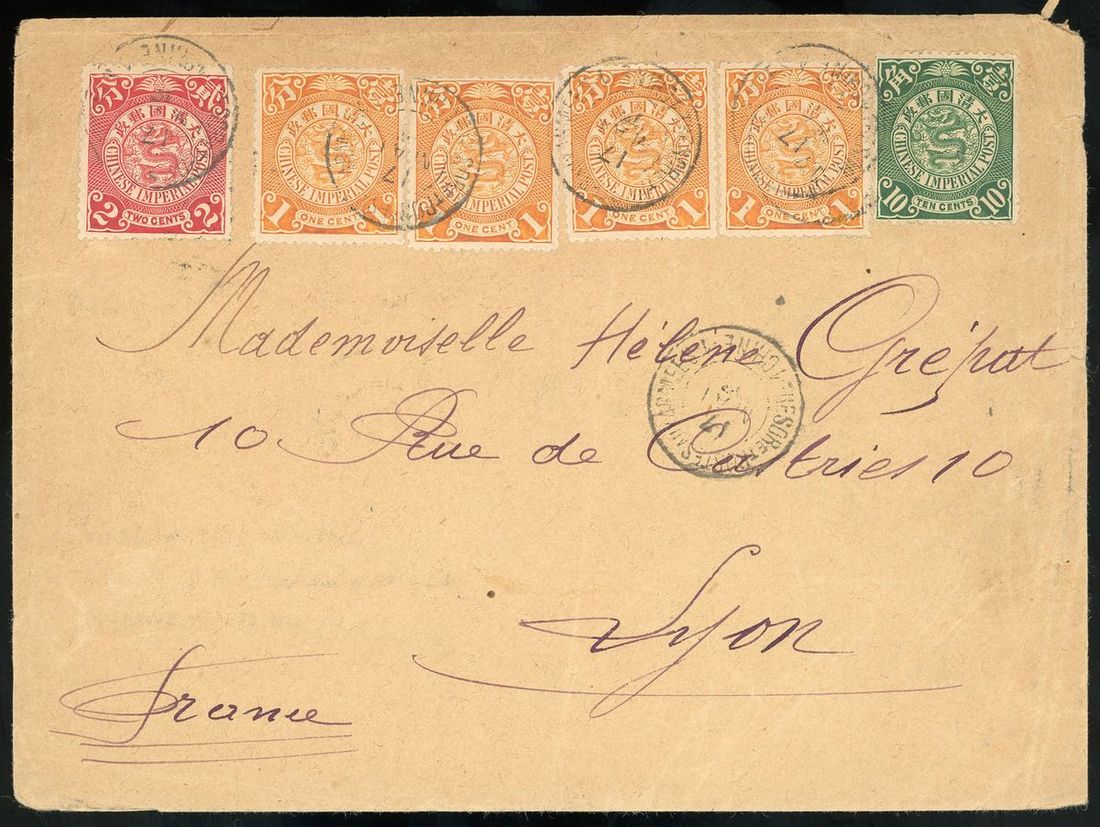 貳 分
大清國郵政
CHINESE IMPERIAL POST
2 TWO CENTS 2
壹 分
大清國郵政
CHINESE IMPERIAL POST
1 ONE CENT 1
壹 分
大清國郵政
CHINESE IMPERIAL POST
1 ONE CENT 1
壹 分
大清國郵政
CHINESE IMPERIAL POST
1 ONE CENT 1
壹 分
大清國郵政
CHINESE IMPERIAL POST
1 ONE CENT 1
壹 角
大清國郵政
CHINESE IMPERIAL POST
10 TEN CENTS 10
Mademoiselle Hélène Grépat
TRESOR ET POSTES AUX ARMEES CHINE
10 Rue de Castries 10
Lyon
France